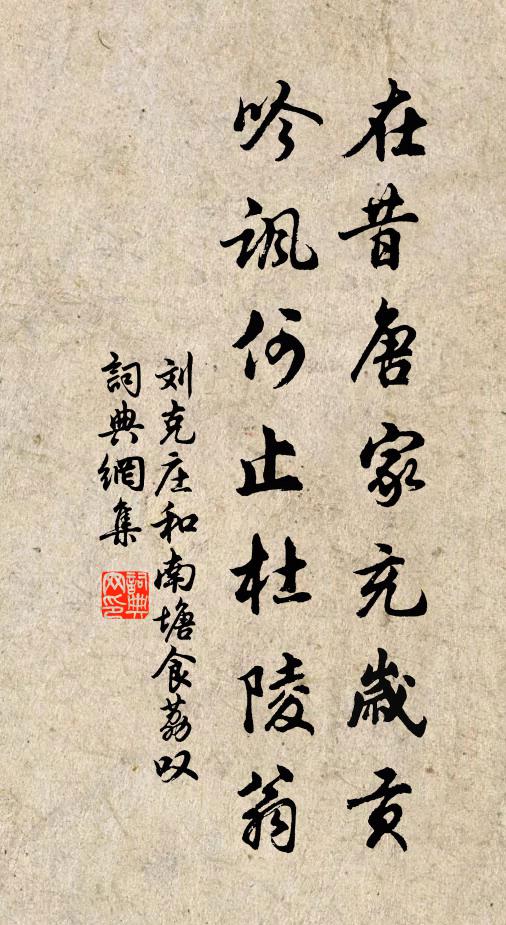 在昔唐家充歲贡
吟讽何止杜陵翁
刘克庄和南塘食荔叹
詞典網集
詞典网印